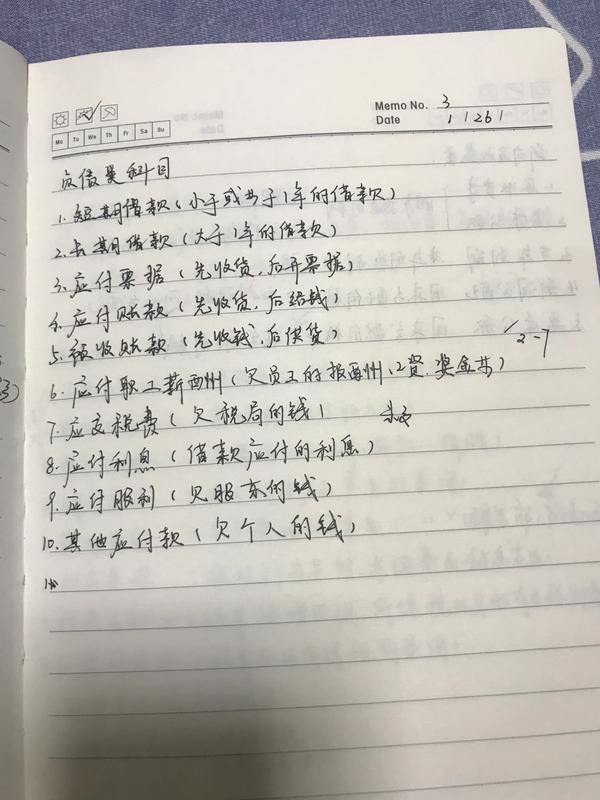 Memo No. 3
Mo Tu We Th Fr Sa Su
Date 1 1 26 1
负债类科目
1. 短期借款(小于或等于1年的借款)
2. 长期借款(大于1年的借款)
3. 应付票据(先收货,后开票据)
4. 应付账款(先收货,后给钱)
5. 预收账款(先收钱,后供货)
2-7
6. 应付职工薪酬州(欠员工的报酬州,工资.奖金等)
7. 应交税费(欠税局的钱)
8. 应付利息(借款应付的利息)
9. 应付股利(欠股东的钱)
10. 其他应付款(欠个人的钱)